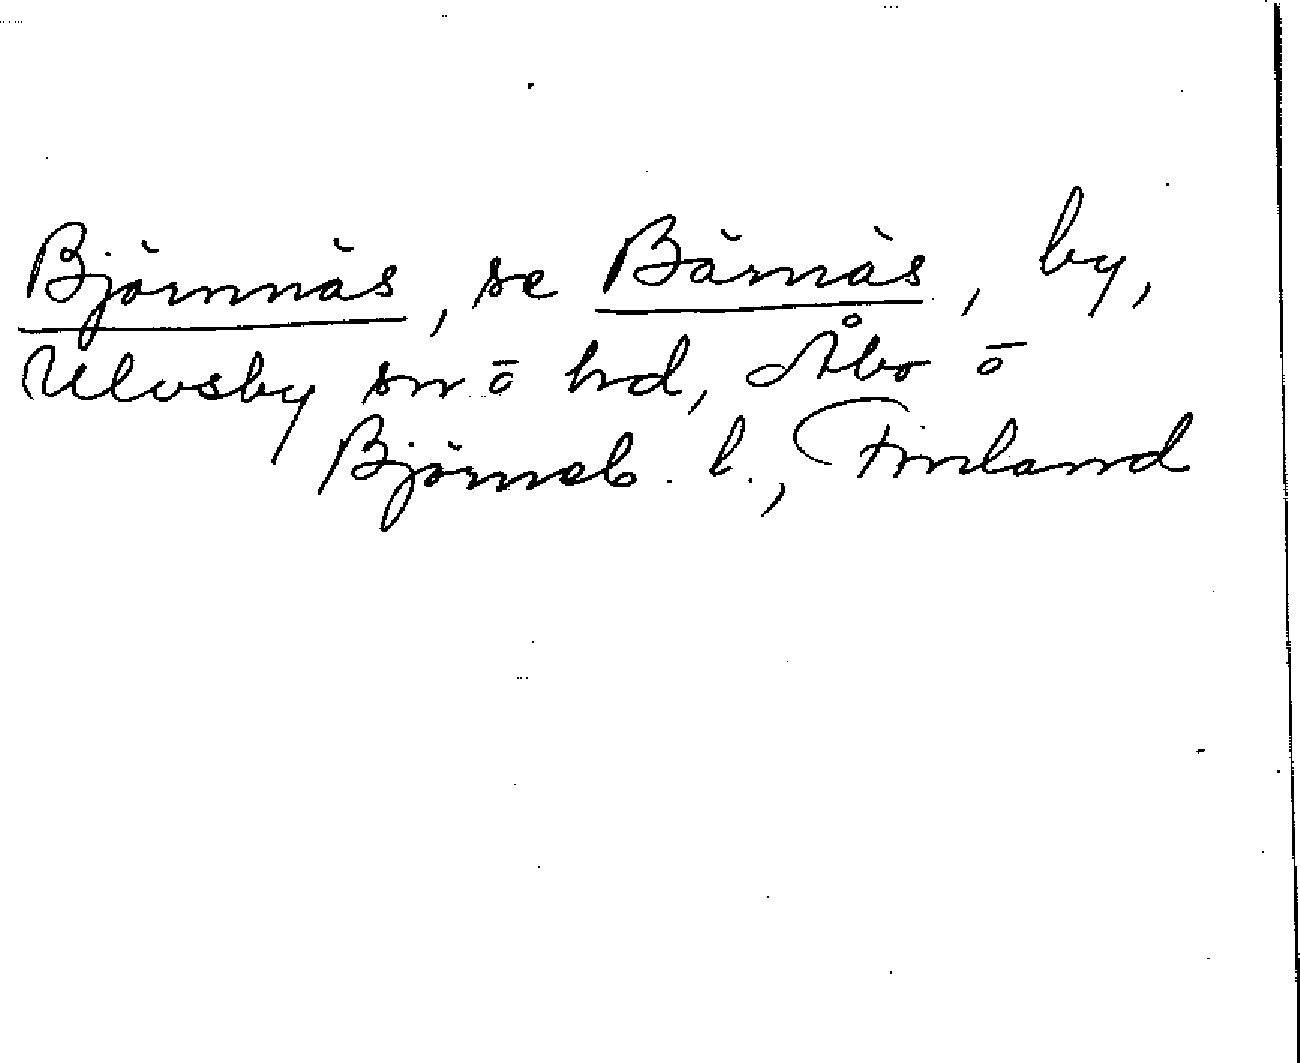 Björnnäs, se Bärnäs, by,
Ulvsby sn ō hd, Åbo ō
Björneb. l., Finland